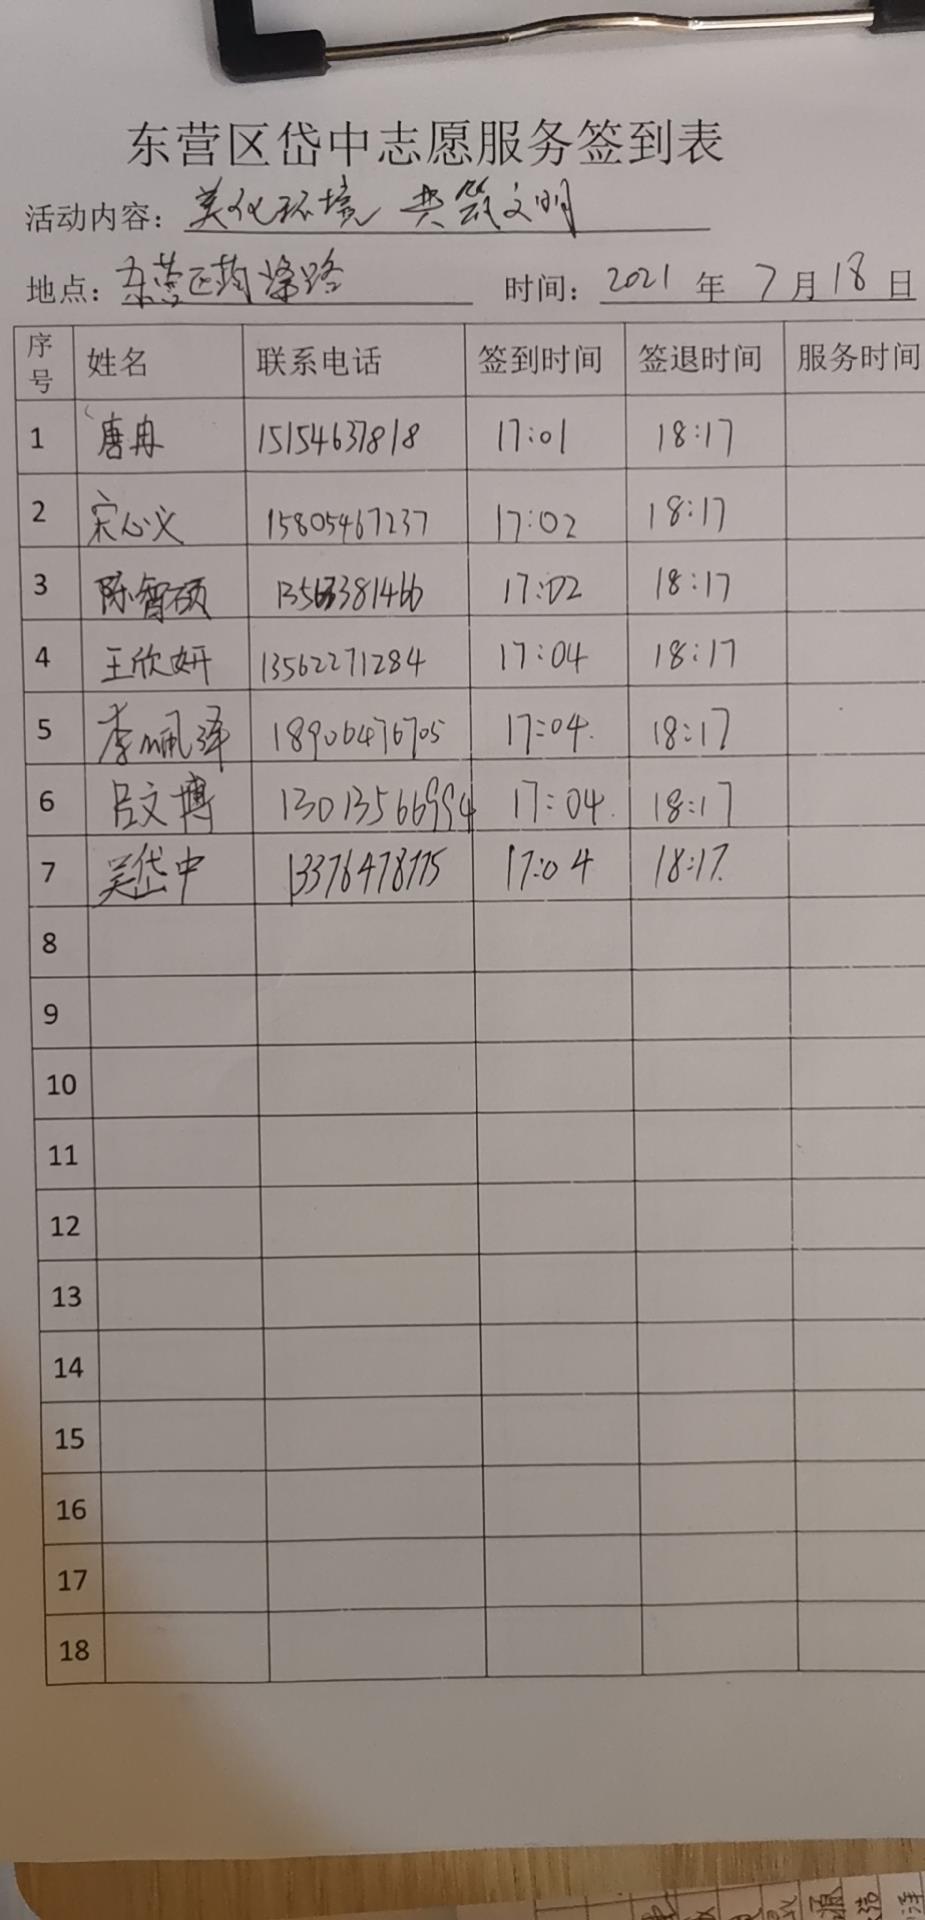 东营区岱中志愿服务签到表
活动内容：美化环境 共筑文明
地点：东营区 路 时间：2021 年 7 月 18 日
序号 姓名 联系电话 签到时间 签退时间 服务时间
1 唐冉 15154637818 17:01 18:17
2 宋心义 15805467237 17:02 18:17
3 陈智硕 17:02 18:17
4 王欣妍 13562271284 17:04 18:17
5 李佩泽 18906476705 17:04 18:17
6 吕文博 13013566994 17:04 18:17
7 吴岱中 13376478775 17:04 18:17
8
9
10
11
12
13
14
15
16
17
18